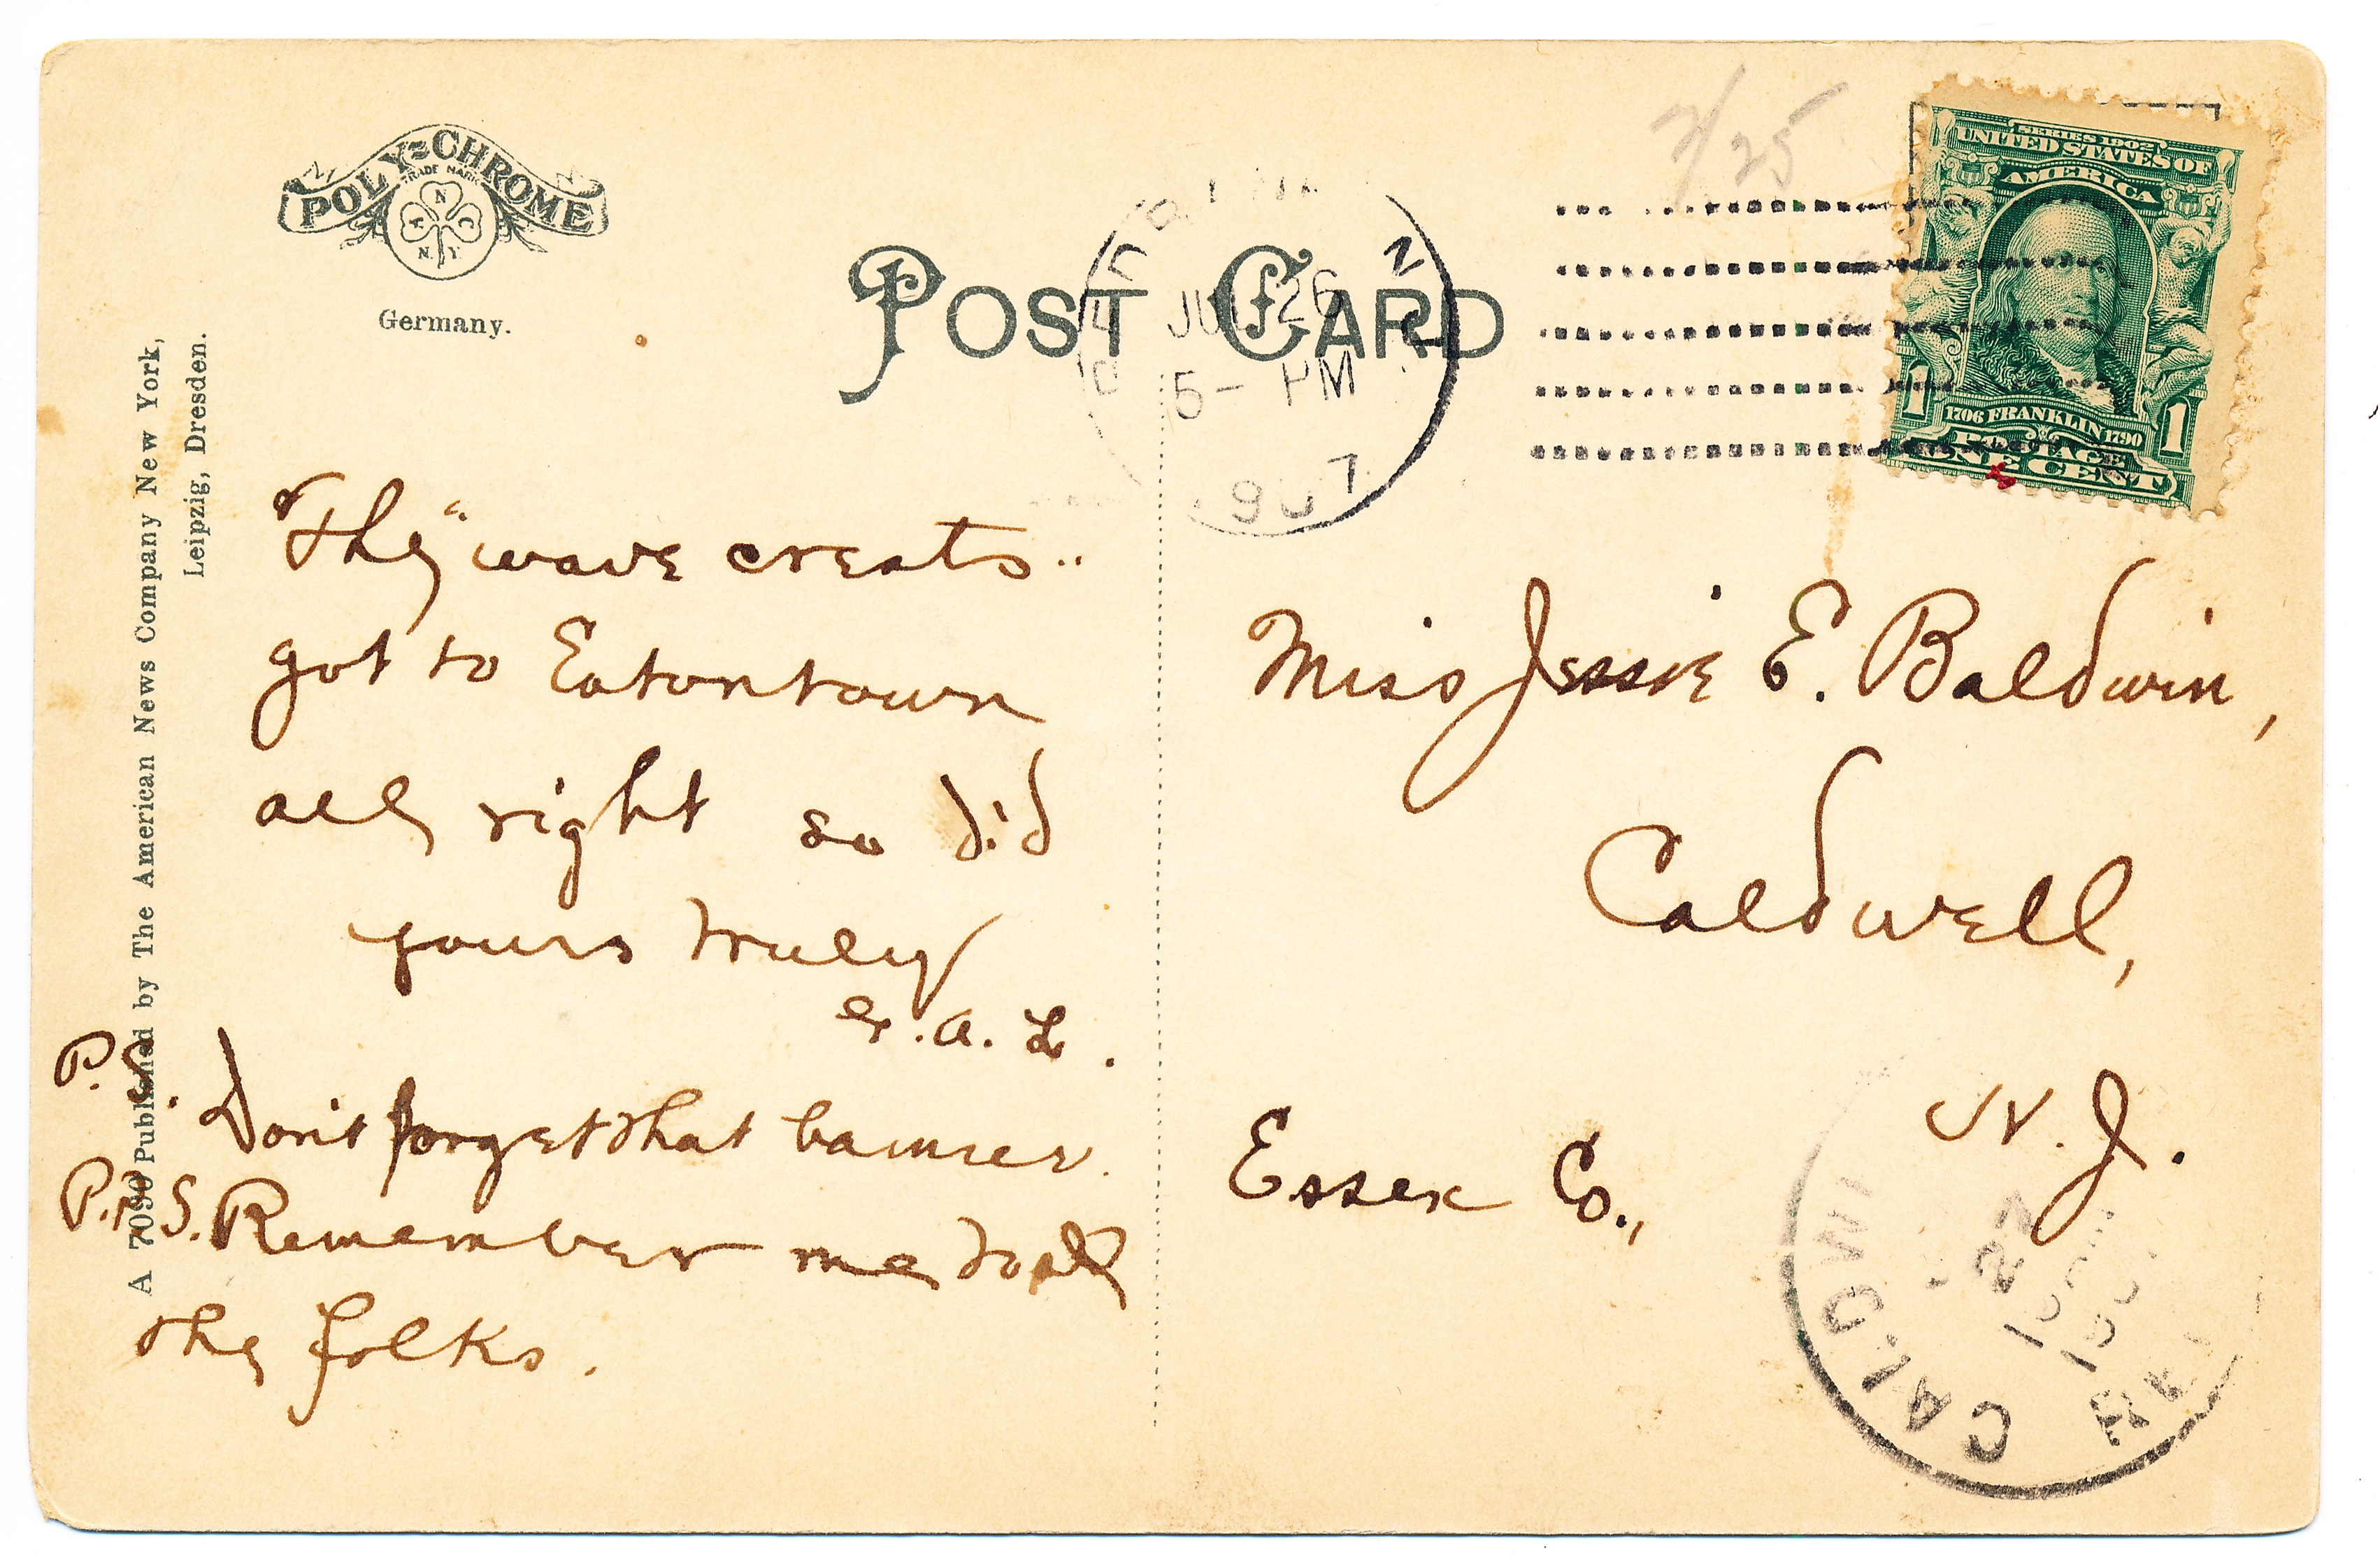 POLY-CHROME
TRADE MARK
A N C
N.Y.
Germany.
A 7090 Published by The American News Company New York,
Leipzig, Dresden.
POST CARD
7/25
JUL 26
5- PM
1907
SERIES 1902
UNITED STATES OF
AMERICA
1706 FRANKLIN 1790
POSTAGE
1 ONE CENT 1
"The" wave crests..
got to Eatontown
all right so did
yours truly
G. A. L.
P.S. Don't forget that banner.
P.P.S. Remember me to all
the folks.
Miss Jessie E. Baldwin,
Caldwell,
N. J.
Essex Co.,